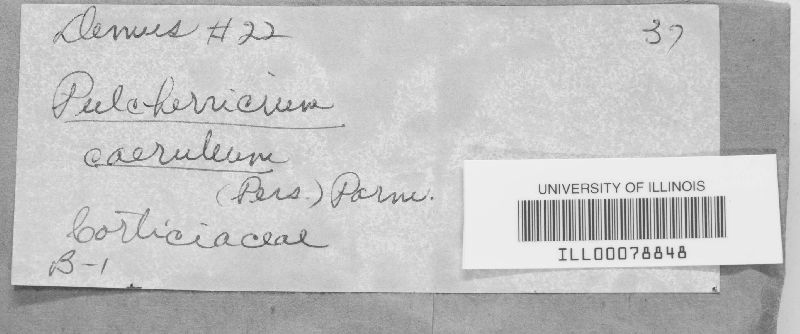 Demus #22
37
Pulcherricium
caeruleum
(Pers.) Parm.
Corticiaceae
B-1
UNIVERSITY OF ILLINOIS
ILL00078848